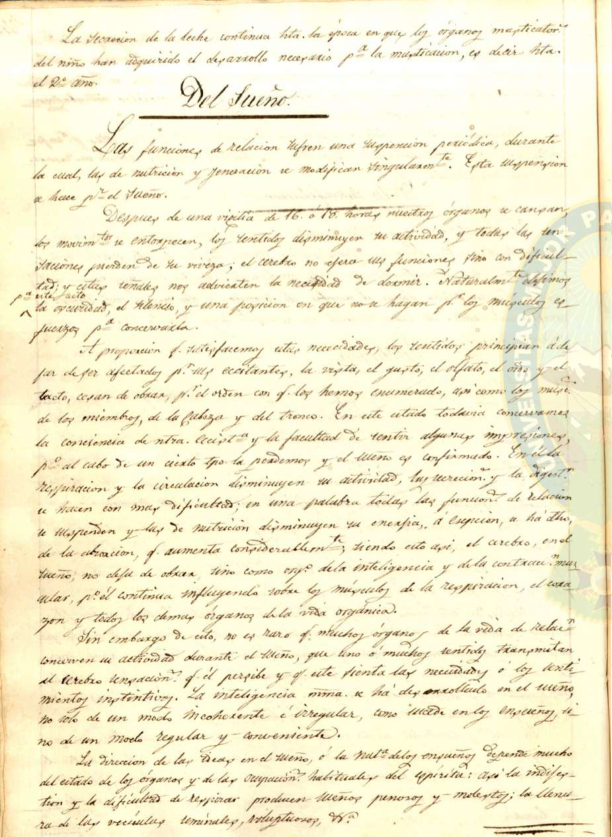 La secrecion de la leche continua hta. la época en que los órganos masticator.s
del niño han adquirido el desarrollo necesario p.a la masticacion, es decir hta.
el 2.o año.
Del Sueño.
Las funciones de relacion sufren una suspencion periódica, durante
la cual, las de nutricion y jeneracion se modifican singularm.te. Esta suspension
se hace p.r el sueño.
Despues de una vijilia de 16 ó 18 horas nuestros órganos se cansan,
los movim.tos se entorpecen, los sentidos disminuyen su actividad, y todas las sen
saciones pierden de su viveza; el cerebro no ejerce sus funciones sino con dificul
tad; y estas señales nos advierten la necesidad de dormir. Naturalm.te
p.a este acto
la oscuridad, el silencio, y una posicion en que no se hagan p.r los músculos es
fuerzos p.a conservarla.
A proporcion q. satisfacemos estas necesidades, los sentidos principian á de
jar de ser afectados p.r sus ecsitantes, la vista, el gusto, el olfato, el oido y el
tacto, cesan de obrar, p.r el orden con q. los hemos enumerado, asi como los musc.s
de los miembros, de la cabeza y del tronco. En este estado todavia conservamos
la conciencia de ntra. ecsist.a y la facultad de sentir algunas impresiones,
p.o al cabo de un cierto tpo. la perdemos y el sueño es confirmado. En él la
respiracion y la circulacion disminuyen su actividad, las secrecion.s y la digest.n
se hacen con mas dificultad; en una palabra todas las funcion.s de relacion
se suspenden y las de nutricion disminuyen su enerjia, á esepcion, se há dho,
de la absorcion, q. aumenta considerablem.te; siendo esto asi, el cerebro, en el
sueño, no deja de obrar, sino como org.o de la inteligencia y de la contracc.n mus
cular, p.s él continua influyendo sobre los músculos de la respiracion, el cora
zon y todos los demas órganos de la vida orgánica.
Sin embargo de esto, no es raro q. muchos órganos de la vida de relac.n
conserven su actividad durante el sueño, que uno ó muchos sentidos transmitan
al cerebro sensacion.s q. él percibe y q. este sienta las necesidades ó los senti
mientos instintivos. La inteligencia mma. se há desarrollado en el sueño,
no solo de un modo incoherente é irregular, como sucede en los ensueños, si
no de un modo regular y conveniente.
La direccion de las ideas en el sueño, ó la nat.a de los ensueños depende mucho
del estado de los órganos y de las ocupacion.s habituales del espiritu: asi la indijes-
tion y la dificultad de respirar producen sueños penosos y molestos; la llenu
ra de las vesículas seminales, voluptuosos, &.a